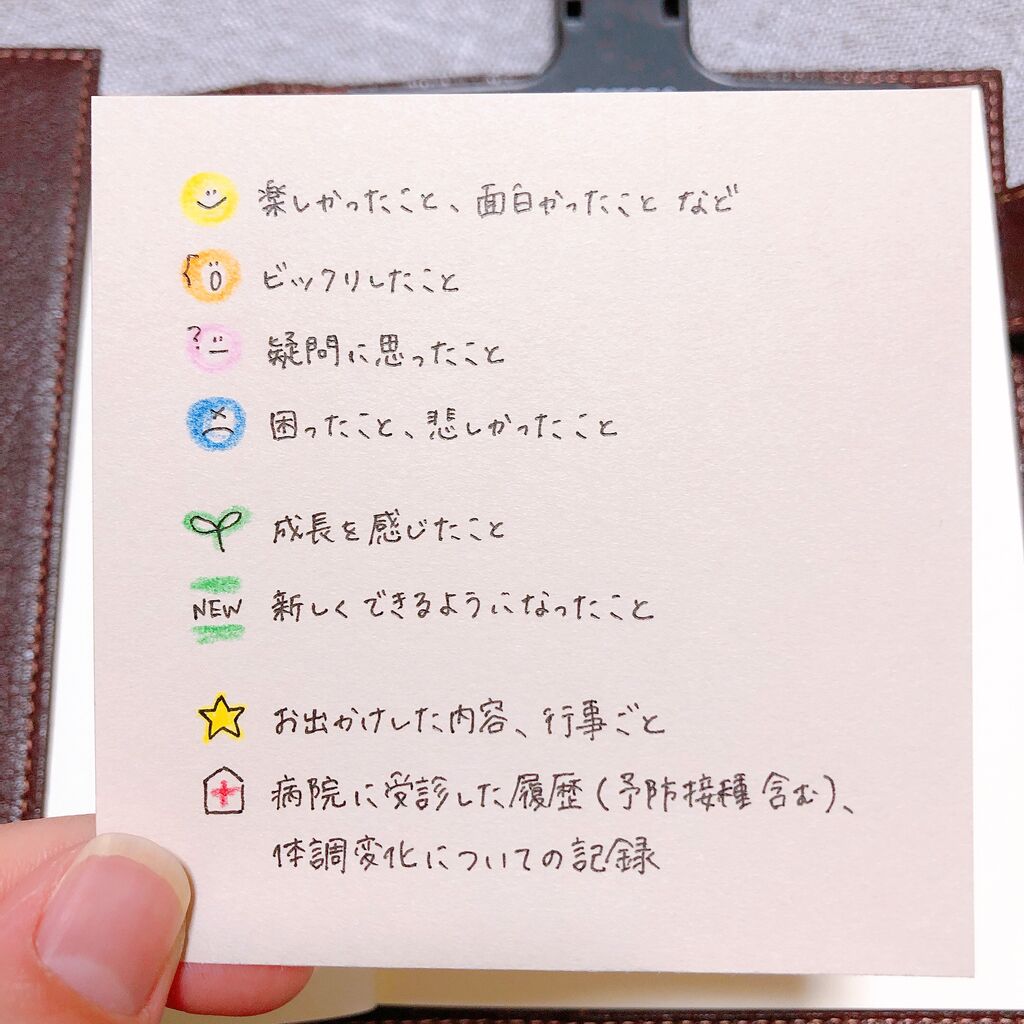 楽しかったこと、面白かったこと など
ビックリしたこと
? 疑問に思ったこと
困ったこと、悲しかったこと
成長を感じたこと
NEW 新しくできるようになったこと
お出かけした内容、行事ごと
病院に受診した履歴(予防接種 含む)、
体調変化についての記録